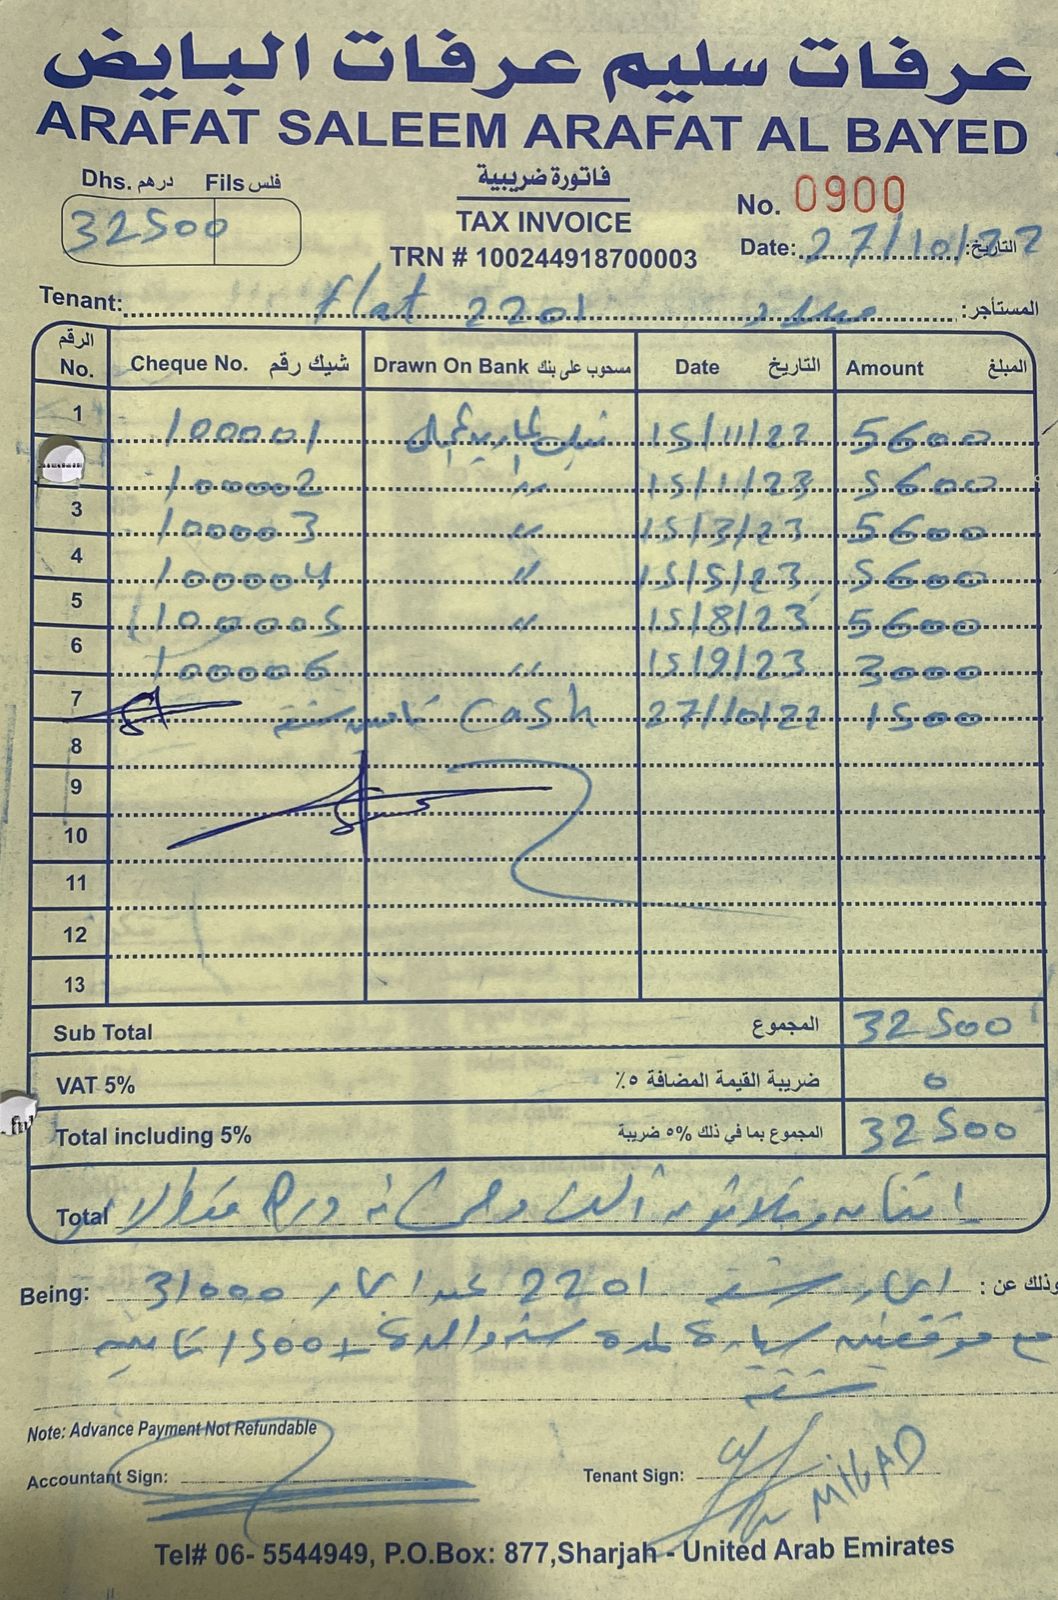 عرفات سليم عرفات البايض
ARAFAT SALEEM ARAFAT AL BAYED
Dhs. درهم Fils فلس
32500
فاتورة ضريبية
TAX INVOICE
TRN # 100244918700003
No. 0900
Date: 27/10/22 التاريخ:
Tenant: flat 2201 ميلاد المستأجر:
الرقم No. Cheque No. شيك رقم Drawn On Bank مسحوب على بنك Date التاريخ Amount المبلغ
1 100001 15/11/22 5600
100002 〃 15/1/23 5600
3 100003 〃 15/3/23 5600
4 100004 〃 15/5/23 5600
5 100005 〃 15/8/23 5600
6 100006 〃 15/9/23 3000
7 تأمين شقة Cash 27/10/22 1500
8
9
10
11
12
13
Sub Total المجموع 32500
VAT 5% ضريبة القيمة المضافة ٥٪ 0
Total including 5% المجموع بما في ذلك 5% ضريبة 32500
Total اثنان وثلاثون ألف وخمسمائة درهم فقط لا
Being: وذلك عن : ايجار شقة 2201 بعد ايجار 31000
مع موقفين سيارة لمدة سنة واحدة + 1500 تأمين
شقة
Note: Advance Payment Not Refundable
Accountant Sign:
Tenant Sign: MILAD
Tel# 06- 5544949, P.O.Box: 877,Sharjah - United Arab Emirates